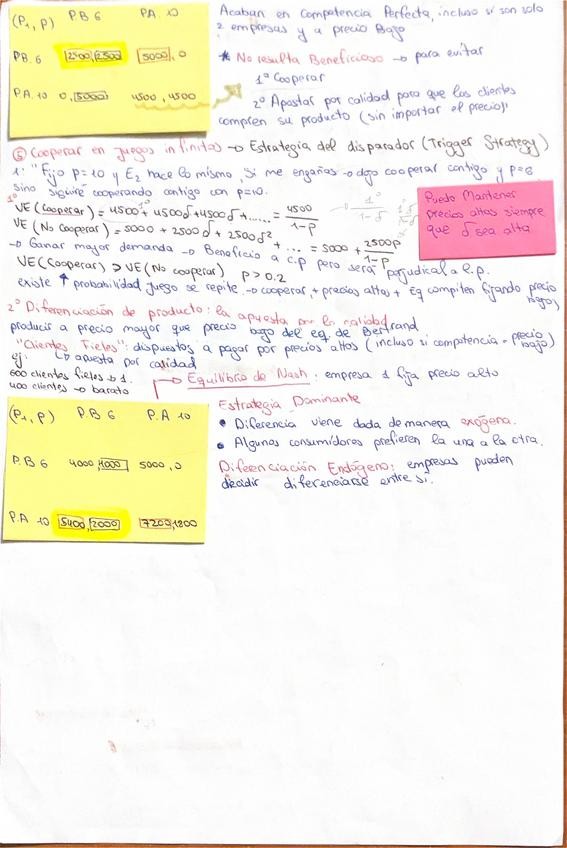 (P₁, P) P.B 6 P.A. 10
P.B. 6 2500, 2500 5000, 0
P.A. 10 0, 5000 4500, 4500
Acaban en Competencia Perfecta, incluso si son solo
2 empresas y a precio Bajo
* No resulta Beneficioso → para evitar
1º Cooperar
2º Apostar por calidad para que los clientes
compren su producto (sin importar el precio)
⑤ Cooperar en juegos infinitos → Estrategia del disparador (Trigger Strategy)
1: "Fijo P=10 y E₂ hace lo mismo, Si me engañas → dejo cooperar contigo y P=6
sino seguiré cooperando contigo con p=10.
1º
VE (Cooperar) = 4500 + 4500δ + 4500δ + ..... = 4500 / 1-p
VE (No Cooperar) = 5000 + 2500δ + 2500δ² + ... = 5000 + 2500p / 1-p
Puedo Mantener
precios altos siempre
que δ sea alta
→ Ganar mayor demanda → Beneficio a c.p pero será perjudical a l.p.
VE (Cooperar) > VE (No Cooperar) p > 0.2
existe ↑ probabilidad juego se repite → cooperar, + precios altos + Eq compiten fijando precio
bajo)
2º Diferenciación de producto: la apuesta por la calidad
producir a precio mayor que precio bajo del eq. de Bertrand
"Clientes Fieles": dispuestos a pagar por precios altos (incluso si competencia = precio
bajo)
ej: ↳ apuesta por calidad
600 clientes fieles → 1.
400 clientes → barato
Equilibrio de Nash: empresa 1 fija precio alto
Estrategia Dominante
• Diferencia viene dada de manera exógena.
• Algunos consumidores prefieren la una a la otra.
Diferenciación Endógeno: empresas pueden
decidir diferenciarse entre si.
(P₁, P) P.B 6 P.A 10
P.B 6 4000, 1000 5000, 0
P.A 10 5400, 2000 7200, 1800